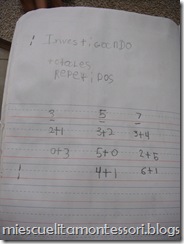 Investigando
totales
repetidos
3 5 7
2+1 3+2 3+4
0+3 5+0 2+5
4+1 6+1
miescuelitamontessori.blogs